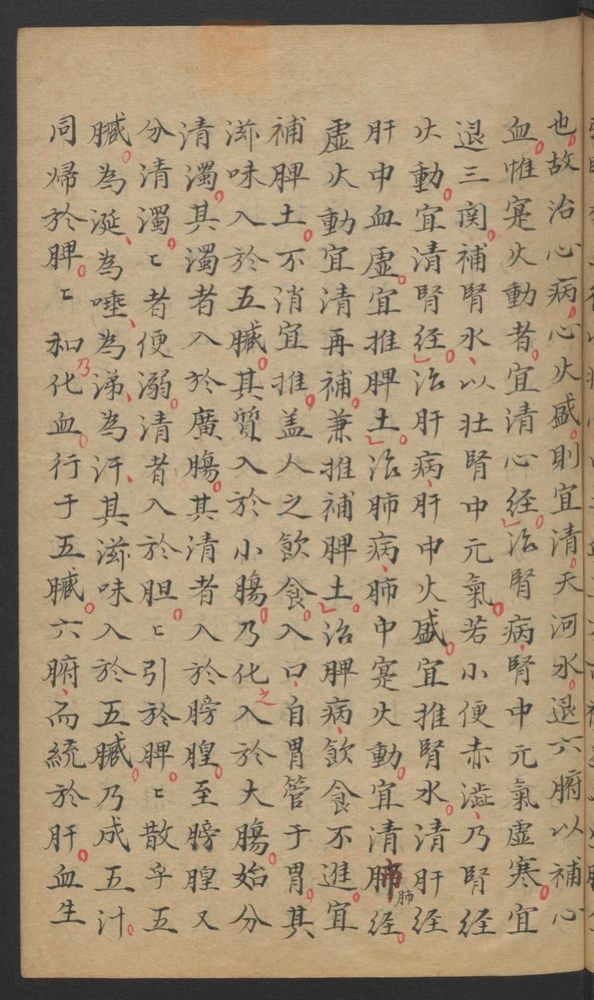 也故治心病心火盛則宜清天河水退六腑以補心
血惟寔火動者宜清心經治腎病腎中元氣虛寒宜
退三関補腎水以壯腎中元氣若小便赤澁乃腎經
火動宜清腎經治肝病肝中火盛宜推腎水清肝經
肝中血虛宜推脾土治肺病肺中寔火動宜清肺經
虛火動宜清再補兼推補脾土治脾病飲食不進宜
補脾土不消宜推盖人之飲食入口自胃管于胃其
滋味入於五臟其質入於小腸乃化之入於大腸始分
清濁其濁者入於廣腸其清者入於膀胱至膀胱又
分清濁〻者便溺清者入於胆〻引於脾〻散乎五
臟為涎為唾為涕為汗其滋味入於五臟乃成五汁
同帰於脾〻和乃化血行于五臟六腑而統於肝血生